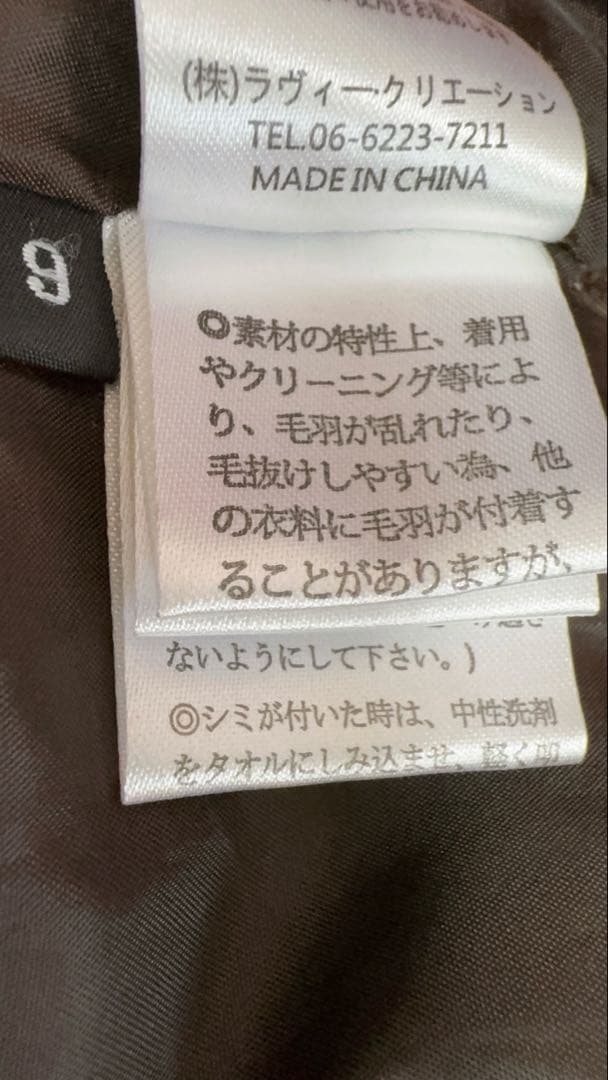 使用をお勧めします
(株)ラヴィー・クリエーション
TEL.06-6223-7211
MADE IN CHINA
9
◎素材の特性上、着用
やクリーニング等によ
り、毛羽が乱れたり、
毛抜けしやすい為、他
の衣料に毛羽が付着す
ることがありますが、
ないようにして下さい。)
◎シミが付いた時は、中性洗剤
をタオルにしみ込ませ、軽く